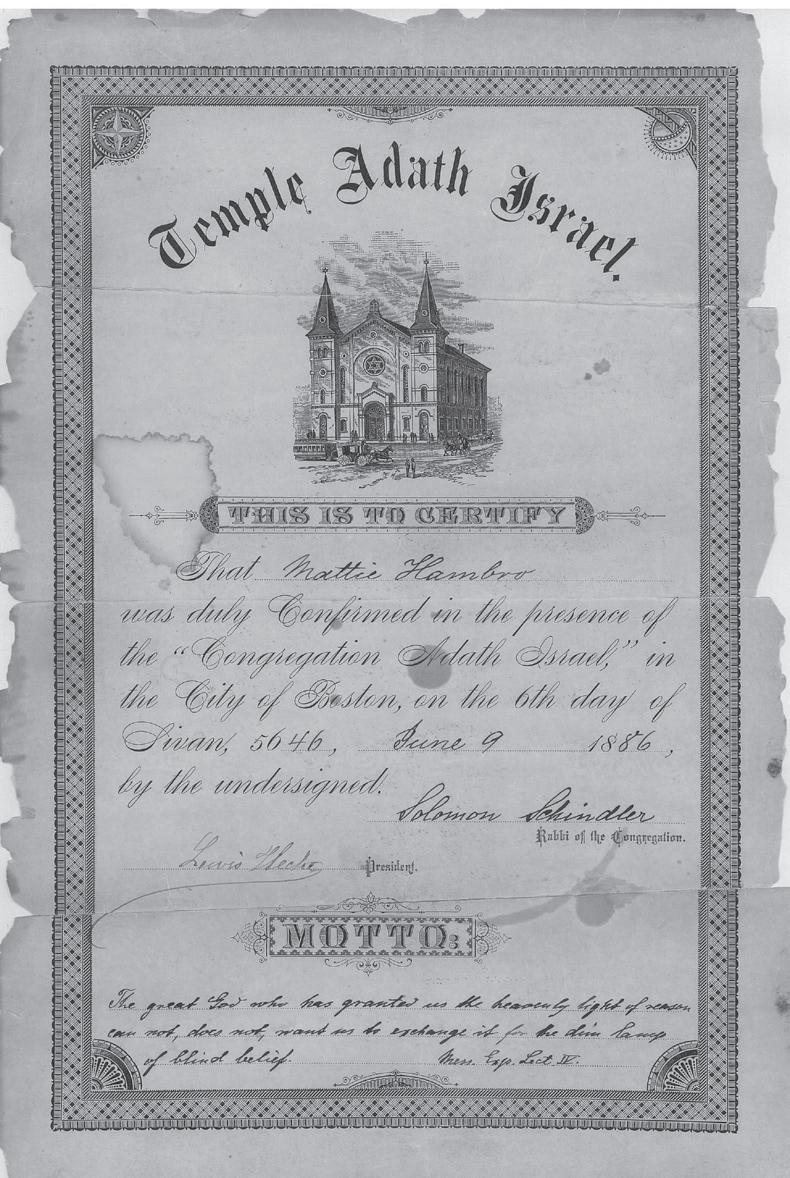 Temple Adath Israel.
THIS IS TO CERTIFY
That Mattie Hambro
was duly Confirmed in the presence of
the "Congregation Adath Israel," in
the City of Boston, on the 6th day of
Sivan, 5646, June 9 1886,
by the undersigned.
Solomon Schindler
Rabbi of the Congregation.
Lewis President.
MOTTO:
The great God who has granted us the heavenly light of reason
can not, does not, want us to exchange it for the dim lamp
of blind belief. Mess. Exp. Lect. IV.